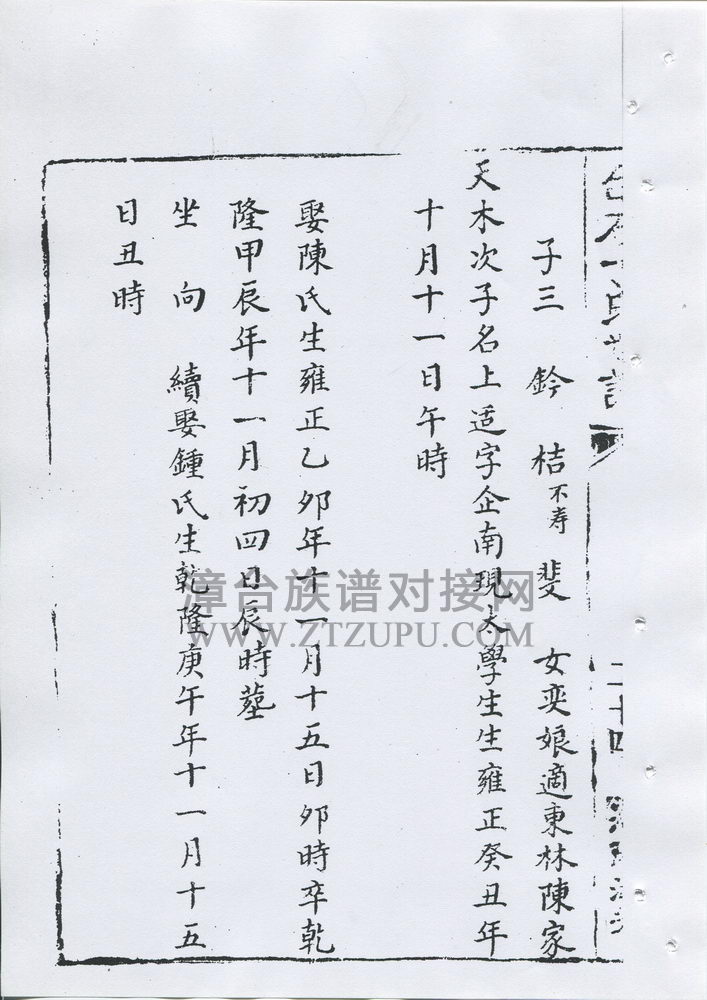 二十四
子三 鈐 桔不寿 斐 女奕娘適東林陳家
天木次子名上适字企南現太學生生雍正癸丑年
十月十一日午時
娶陳氏生雍正乙卯年十一月十五日卯時卒乾
隆甲辰年十一月初四日辰時墓
坐 向 續娶鍾氏生乾隆庚午年十一月十五
日丑時
漳台族谱对接网
WWW.ZTZUPU.COM